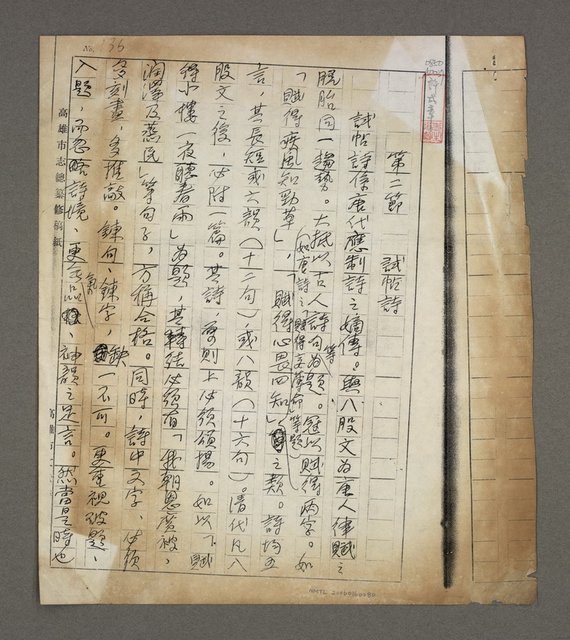 第二節　試帖詩
試帖詩係唐代應制詩之嫡傳。與八股文為唐人律賦之
脫胎同一趨勢。大抵以古人詩句為題。冠以賦得兩字。如
等
「賦得疾風知勁草」，「賦得心畏四知」之類。詩均五
（如唐詩之賦得 等題）
言，其長短或六韻（十二句），或八韻（十六句）。清代凡八
股文之後，必附一篇。其詩，原則上必須頌揚。如以「賦
得小樓一夜聽春雨」為題，其轉結必須有「我朝恩廣被，
潤澤及蒸民」等句子，方稱合格。同時，詩中文字，必須
多刻畫，多推敲。鍊句、鍊字，缺一不可。更重視破題、
入題，而忽略詩境，更無氣品、神韻之足言。然當是時也
高雄市志總纂修稿紙
No. 36
NMTL 20060160080